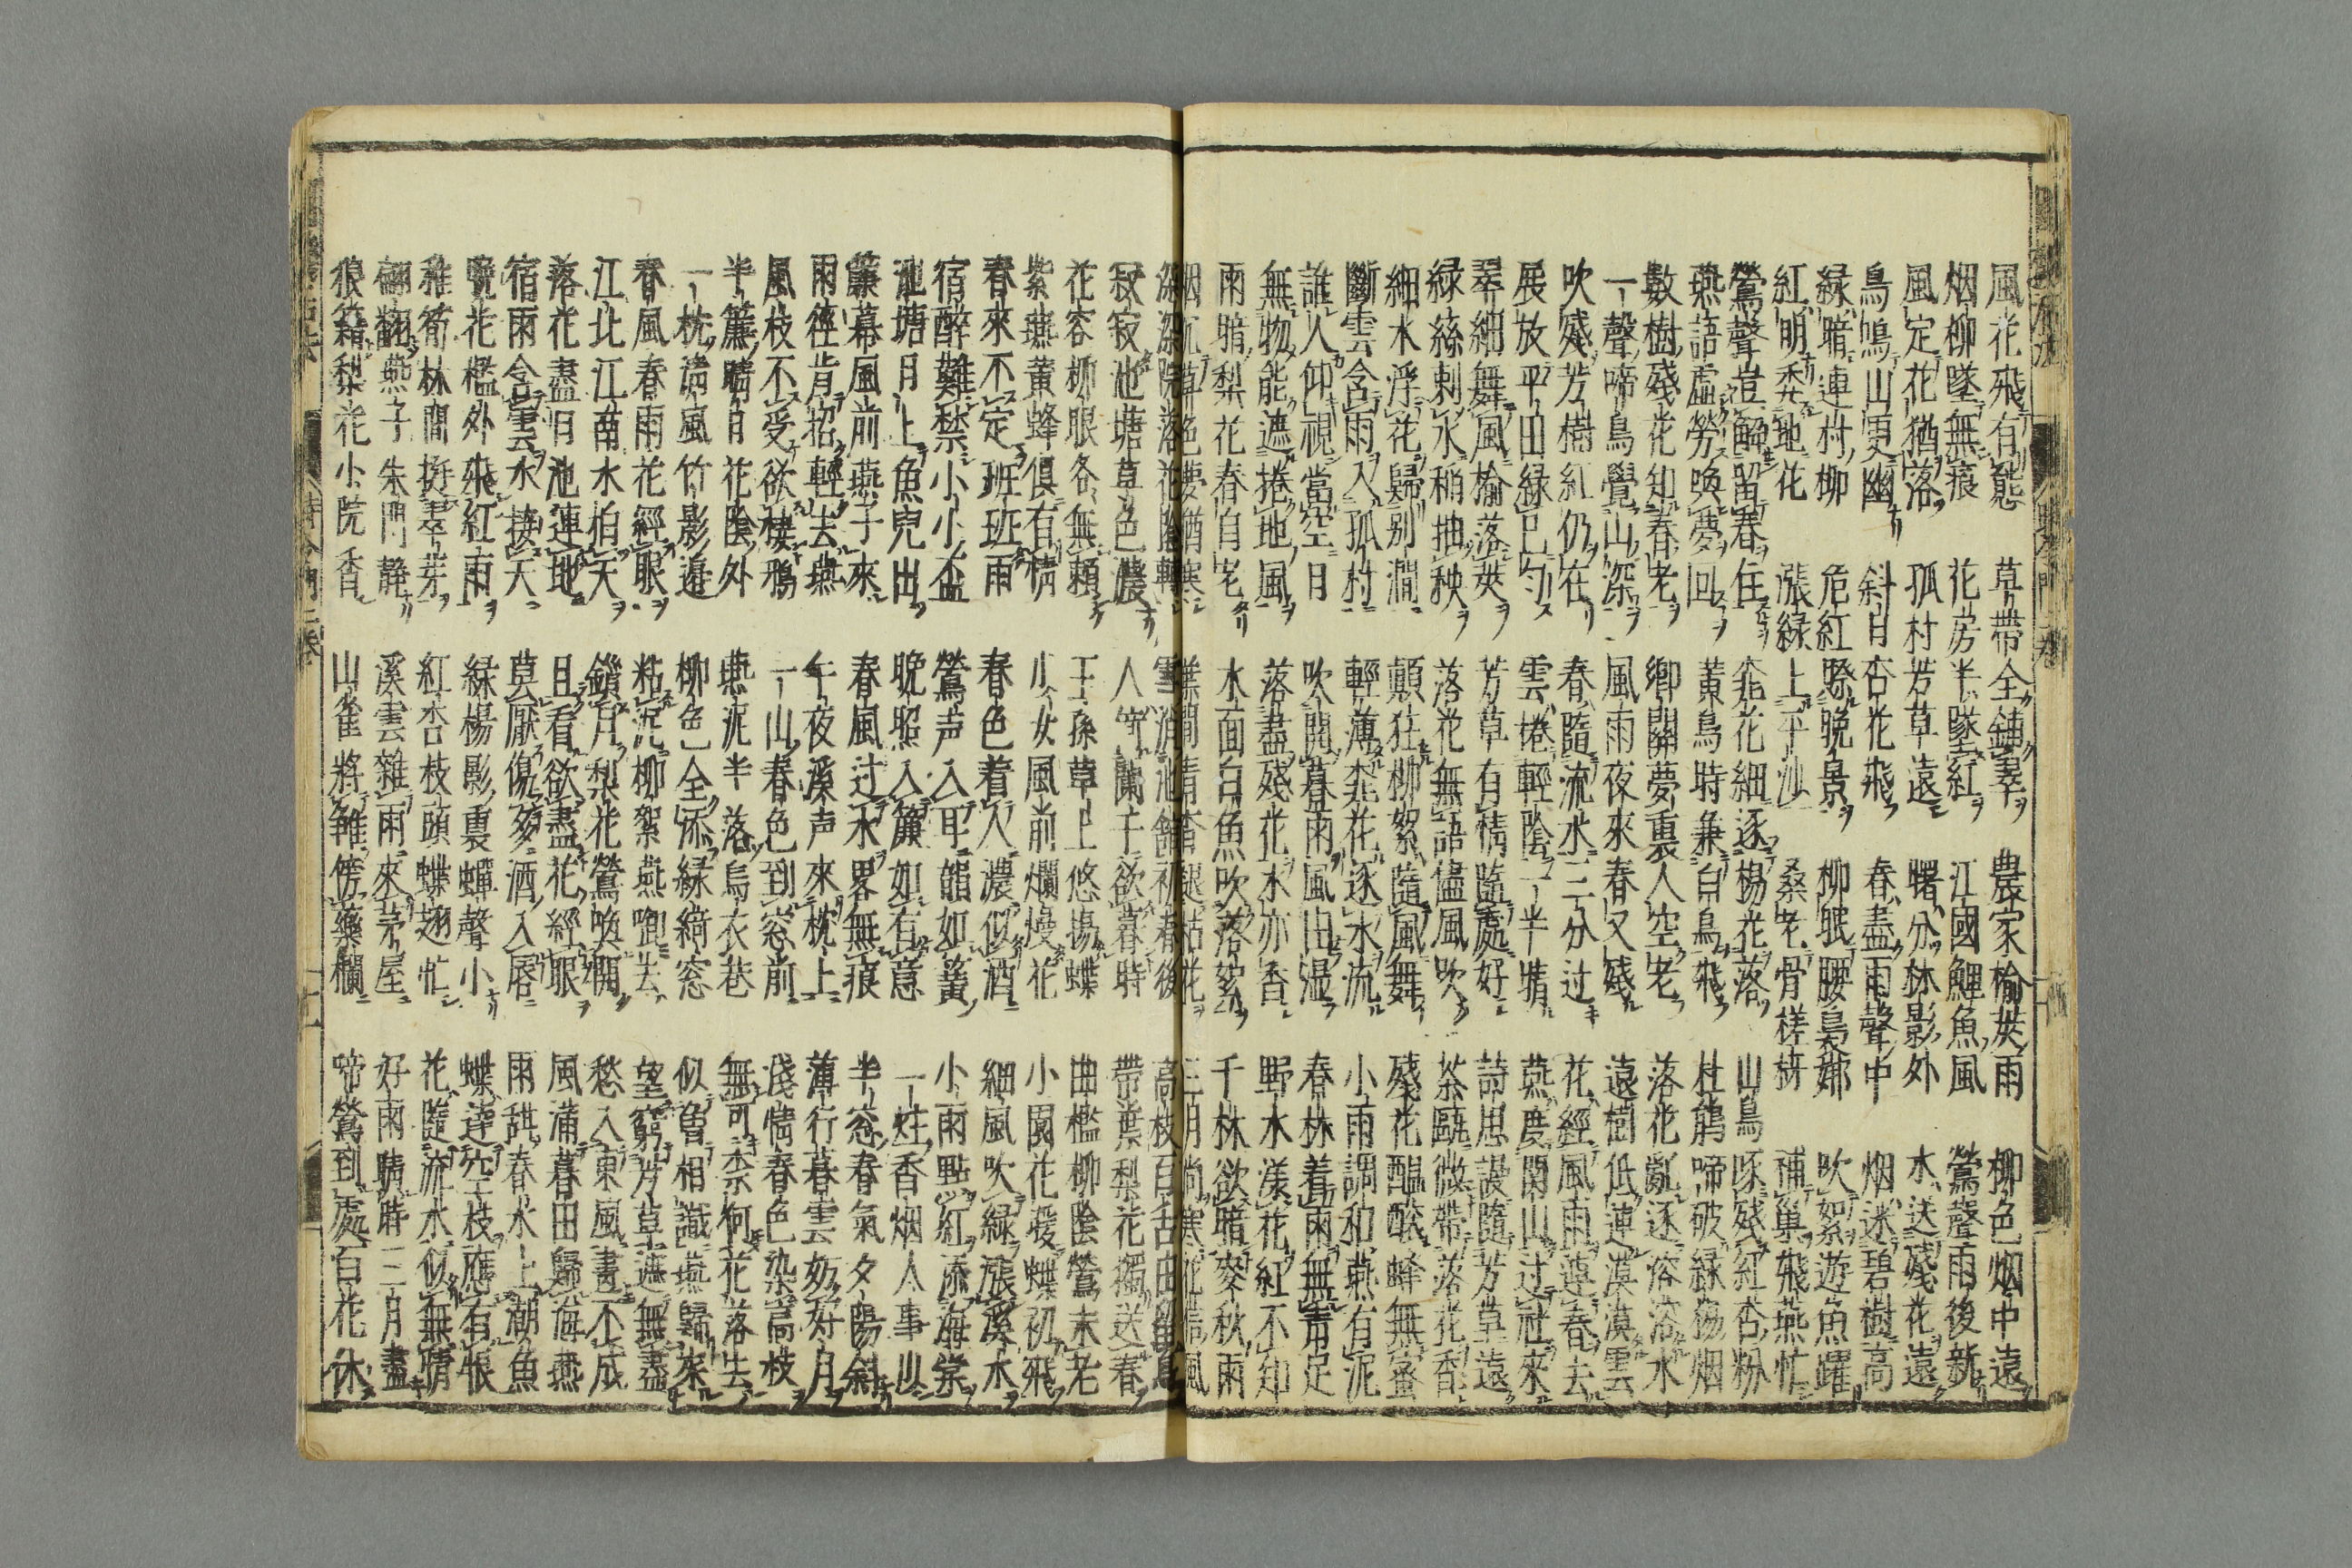 風花飛有態 草帶全鋪翠 農家榆莢雨 柳色烟中遠
烟柳墜無痕 花房半墜紅 江國鯉魚風 鶯聲雨後新
風定花猶落 孤村芳草遠 曙分林影外 水送殘花遠
鳥鳴山更幽 斜日杏花飛 春盡雨聲中 烟迷碧樹高
緑暗連村柳 危紅際晚景 柳眠腰裊娜 吹絮遊魚躍
紅明委地花 漲緑上平沙 桑老骨槎枒 補巢飛燕忙
鶯聲豈解留春住 桃花細逐楊花落 山鳥啄殘紅杏粉
燕語虛勞喚夢回 黃鳥時兼白鳥飛 杜鵑啼破緑楊烟
數樹殘花知春老 鄉關夢裏人空老 落花亂逐溶溶水
一聲啼鳥覺山深 風雨夜來春又殘 遠樹低連漠漠雲
吹殘芳樹紅仍在 春隨流水三分过 花經風雨遠春去
展放平田緑已勻 雲捲輕陰一半晴 燕度關山过社來
翠細舞風榆落莢 芳草有情隨處好 詩思謾隨芳草遠
緑絲刺水稻抽秧 落花無語儘風吹 茶甌微帶落花香
細水浮花歸別澗 顛狂柳絮隨風舞 殘花醞釀蜂無蜜
斷雲含雨入孤村 輕薄桃花逐水流 小雨調和燕有泥
誰人仰視當空日 吹開暮雨風由湿 春林着雨無青足
無物能遮捲地風 落盡殘花水亦香 野水漾花紅不知
雨暗梨花春自老 水面白魚吹落絮 千林欲暗麥秋雨
烟沉草色夢猶寒 三月尚寒花信風
深深院落花陰轉 雪消池館初春後 高枝百舌
寂寂池塘草色濃 人倚闌干欲暮時 帶葉梨花獨送春
花容柳眼各無賴 王孫草上悠揚蝶 曲檻柳陰鶯未老
紫燕黃蜂俱有情 少女風前爛熳花 小園花暖蝶初飛
春來不定班班雨 春色着人濃似酒 細風吹緑漲溪水
宿醉難禁小小盃 鶯声入耳韻如簧 小雨點紅添海棠
池塘月上魚兒出 晚照入簾如有意 一炷香烟人事少
簾幕風前燕子來 春風过水畧無痕 半窓春氣夕陽斜
雨徑肯招輕去燕 午夜溪声來枕上 薄行暮雲妨好月
風枝不受欲棲鴉 一山春色到窓前 淺情春色染高枝
半簾晴日花陰外 燕泥半落烏衣巷 無可柰何花落去
一枕清風竹影邊 柳色全添緑綺窓 似曾相識燕歸來
春風春雨花經眼 粘泥柳絮燕啣去 望窮芳草遮無盡
江北江南水拍天 鎖月梨花鶯喚開 愁入東風畫不成
落花盡日池連地 且看欲盡花經眼 風蒲暮田歸海燕
宿雨含雲水接天 莫厭傷多酒入唇 雨甜春水上潮魚
曉花檻外飛紅雨 緑楊影裏蟬聲小 蝶遶空枝應有悵
稚筍林間挺翠芽 紅杏枝頭蝶翅忙 花隨流水似無情
翩翩燕子朱門静 溪雲雜雨來茅屋 好雨晴時三月盡
狼藉梨花小院香 山雀將雛傍藥欄 啼鶯到處百花休